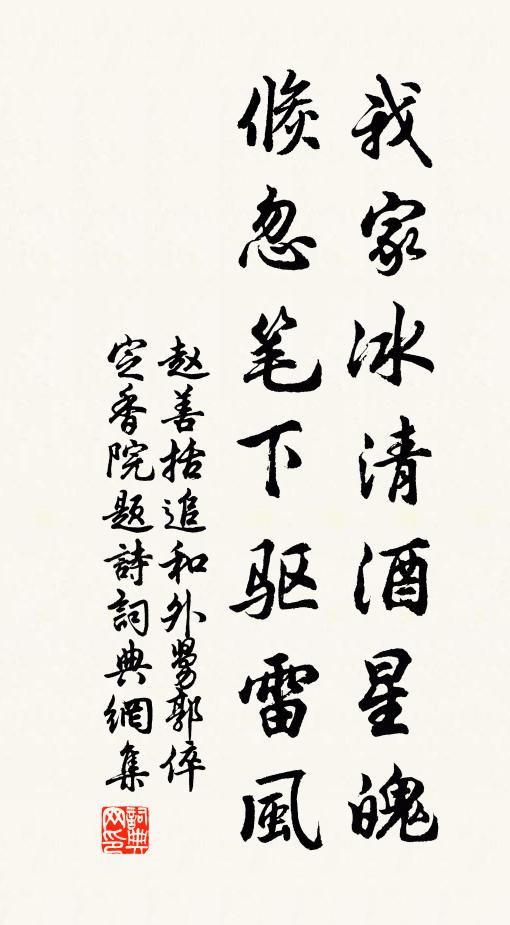 我家冰清酒星魄
倏忽笔下驱雷風
赵善括追和外舅郭倅
定香院题詩詞典網集
詞典网印